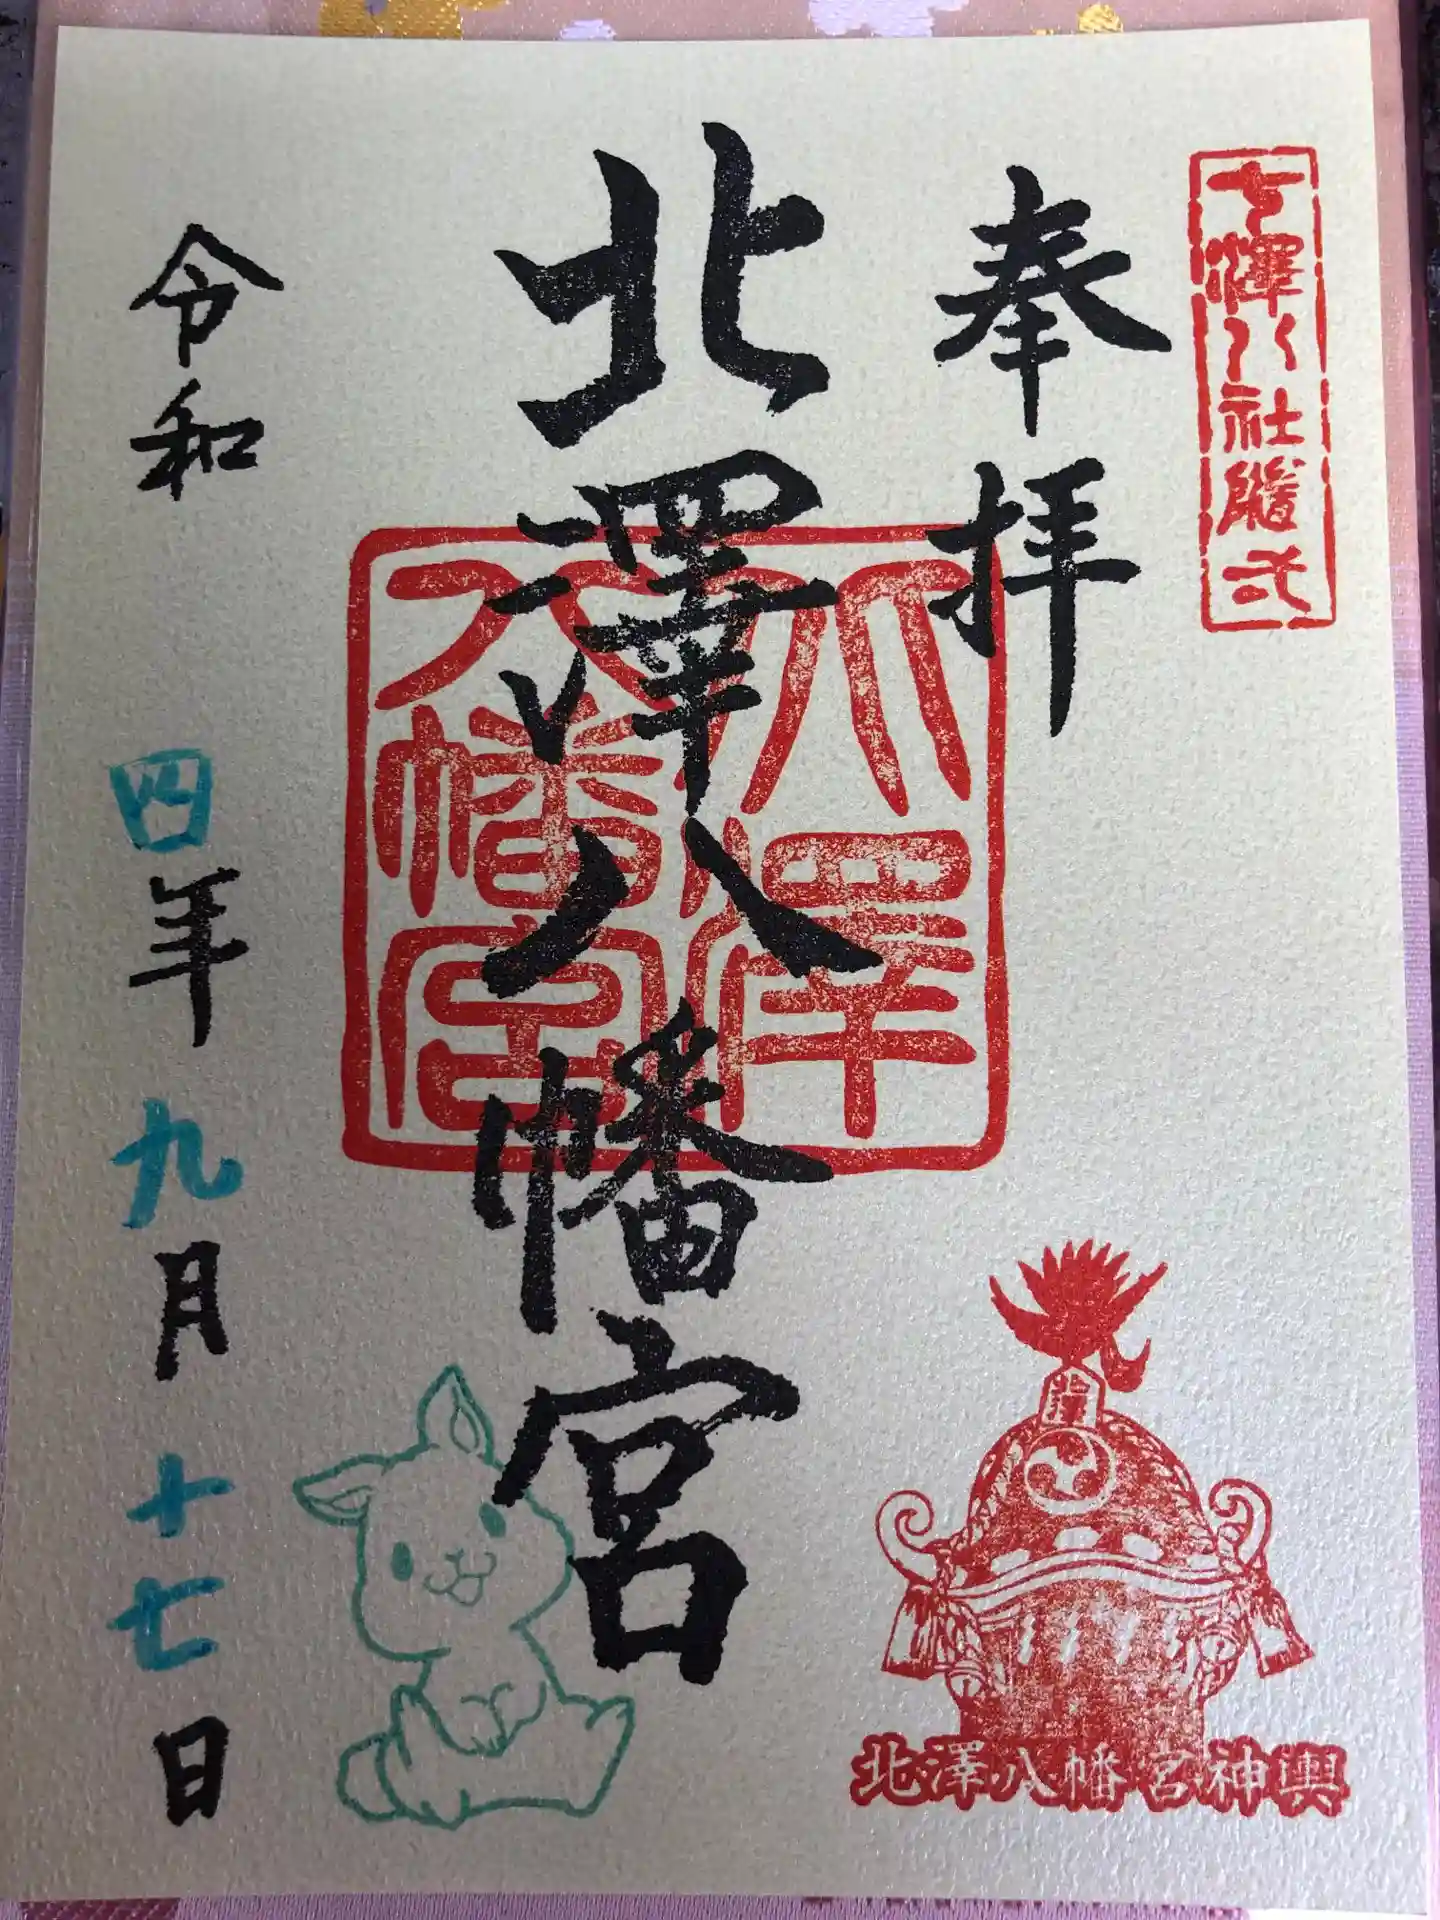 七澤八社隨弌
奉拝
北澤八幡宮
北澤
八幡宮
令和四年九月十七日
北澤
北澤八幡宮神輿